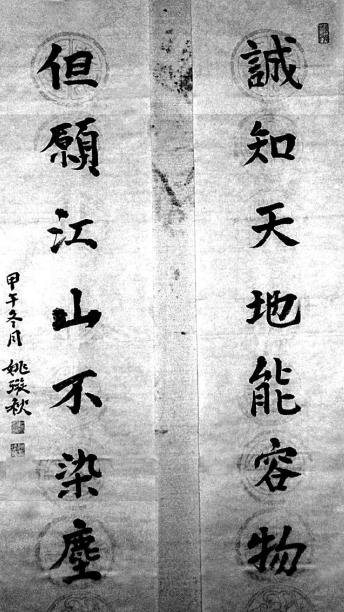 誠知天地能容物
但願江山不染塵
甲午冬月 姚璇秋